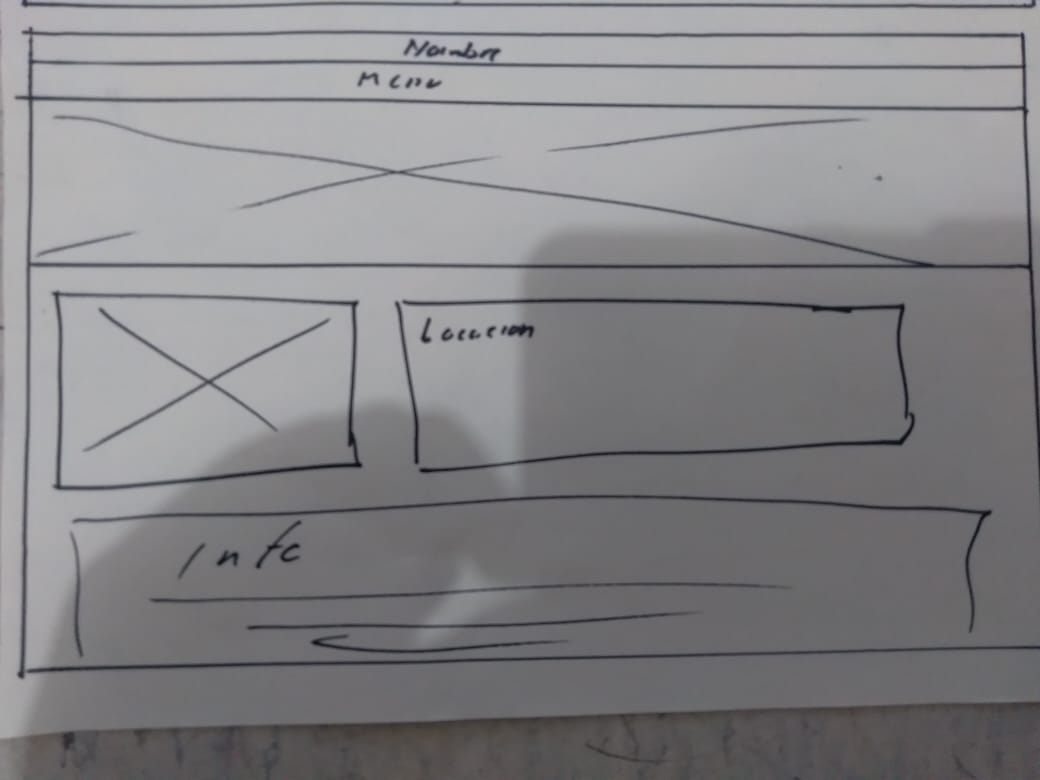 Nombre
Menu
Locacion
Info